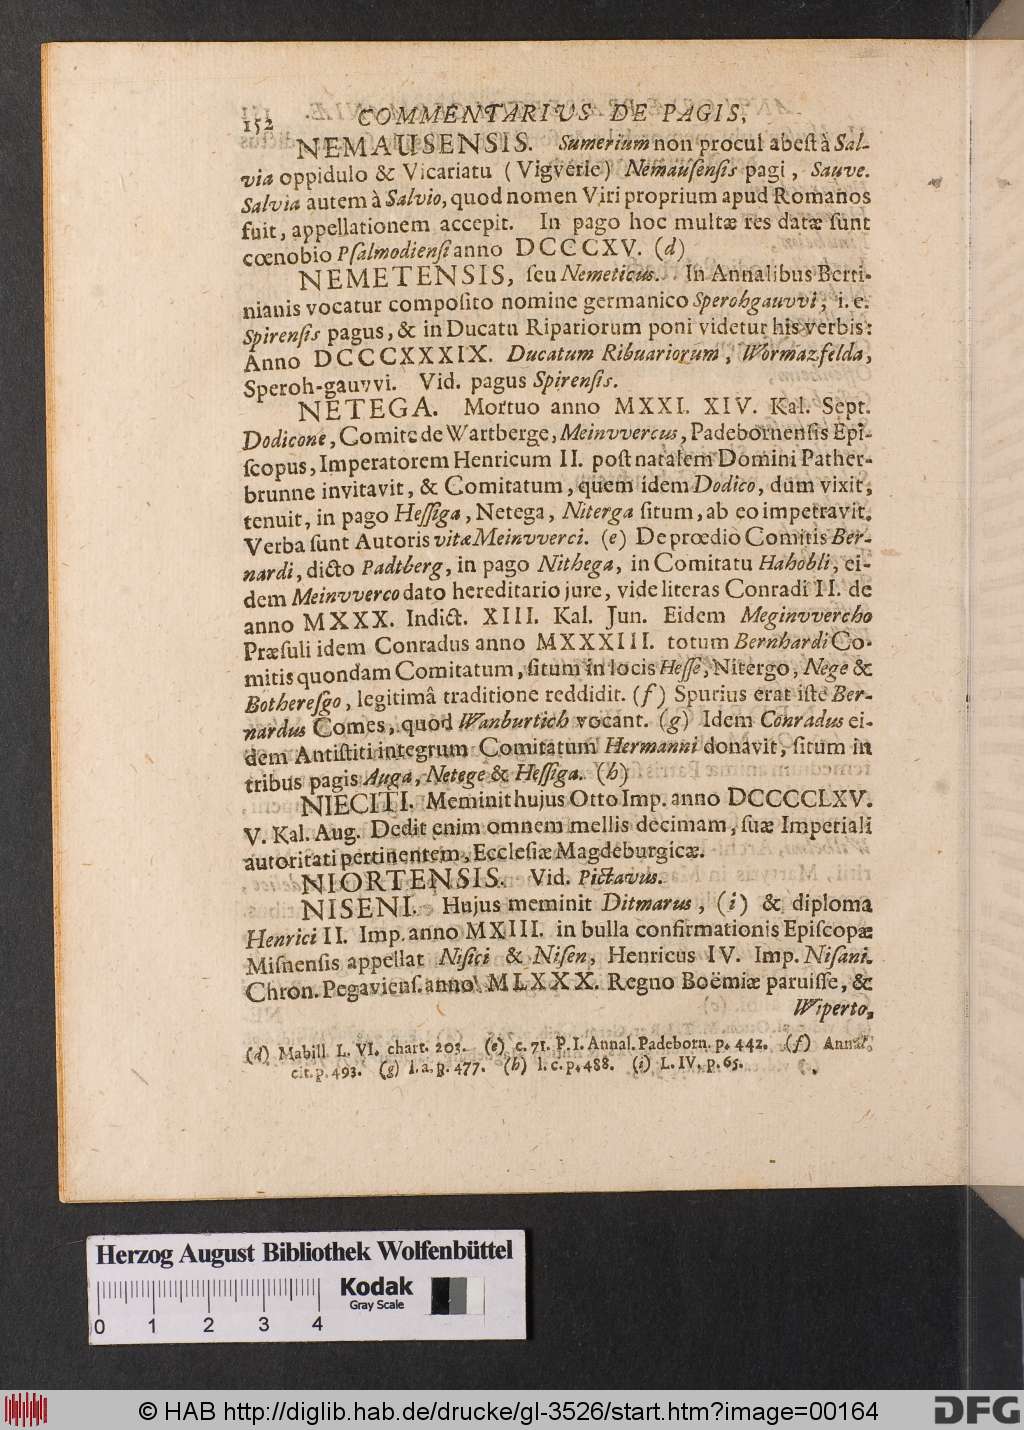 152 COMMENTARIUS DE PAGIS,
NEMAUSENSIS. Sumerium non procul abest à Sal-
via oppidulo & Vicariatu (Vigverie) Nemausensis pagi, Sauve.
Salvia autem à Salvio, quod nomen Viri proprium apud Romanos
fuit, appellationem accepit. In pago hoc multæ res datæ sunt
cœnobio Psalmodiensi anno DCCCXV. (d)
NEMETENSIS, seu Nemeticus. In Annalibus Berti-
nianis vocatur composito nomine germanico Sperohgauvvi, i. e.
Spirensis pagus, & in Ducatu Ripariorum poni videtur his verbis:
Anno DCCCXXXIX. Ducatum Ribuariorum, Wormazfelda,
Speroh-gauvvi. Vid. pagus Spirensis.
NETEGA. Mortuo anno MXXI. XIV. Kal. Sept.
Dodicone, Comite de Wartberge, Meinvvercus, Padebornensis Epi-
scopus, Imperatorem Henricum II. post natalem Domini Pather-
brunne invitavit, & Comitatum, quem idem Dodico, dum vixit,
tenuit, in pago Hessiga, Netega, Niterga situm, ab eo impetravit.
Verba sunt Autoris vitæ Meinvverci. (e) De prœdio Comitis Ber-
nardi, dicto Padtberg, in pago Nithega, in Comitatu Hahobli, ei-
dem Meinvverco dato hereditario jure, vide literas Conradi II. de
anno MXXX. Indict. XIII. Kal. Jun. Eidem Meginvvercho
Præsuli idem Conradus anno MXXXIII. totum Bernhardi Co-
mitis quondam Comitatum, situm in locis Hesse, Nitergo, Nege &
Botheresgo, legitimâ traditione reddidit. (f) Spurius erat iste Ber-
nardus Comes, quod Wanburtich vocant. (g) Idem Conradus ei-
dem Antistiti integrum Comitatum Hermanni donavit, situm in
tribus pagis Auga, Netege & Hessiga. (h)
NIECITI. Meminit hujus Otto Imp. anno DCCCCLXV.
V. Kal. Aug. Dedit enim omnem mellis decimam, suæ Imperiali
autoritati pertinentem, Ecclesiæ Magdeburgicæ.
NIORTENSIS. Vid. Pictavus.
NISENI. Hujus meminit Ditmarus, (i) & diploma
Henrici II. Imp. anno MXIII. in bulla confirmationis Episcopæ
Misnensis appellat Nisici & Nisen, Henricus IV. Imp. Nisani.
Chron. Pegaviens. anno MLXXX. Regno Boëmiæ paruisse, &
Wiperto,
(d) Mabill L. VI. chart. 203. (e) c. 71. P. I. Annal. Padeborn. p. 442. (f) Annal.
cit. p. 493. (g) l. a. p. 477. (h) l. c. p. 488. (i) L. IV. p. 65.
Herzog August Bibliothek Wolfenbüttel
Kodak
Gray Scale
0 1 2 3 4
© HAB http://diglib.hab.de/drucke/gl-3526/start.htm?image=00164
DFG